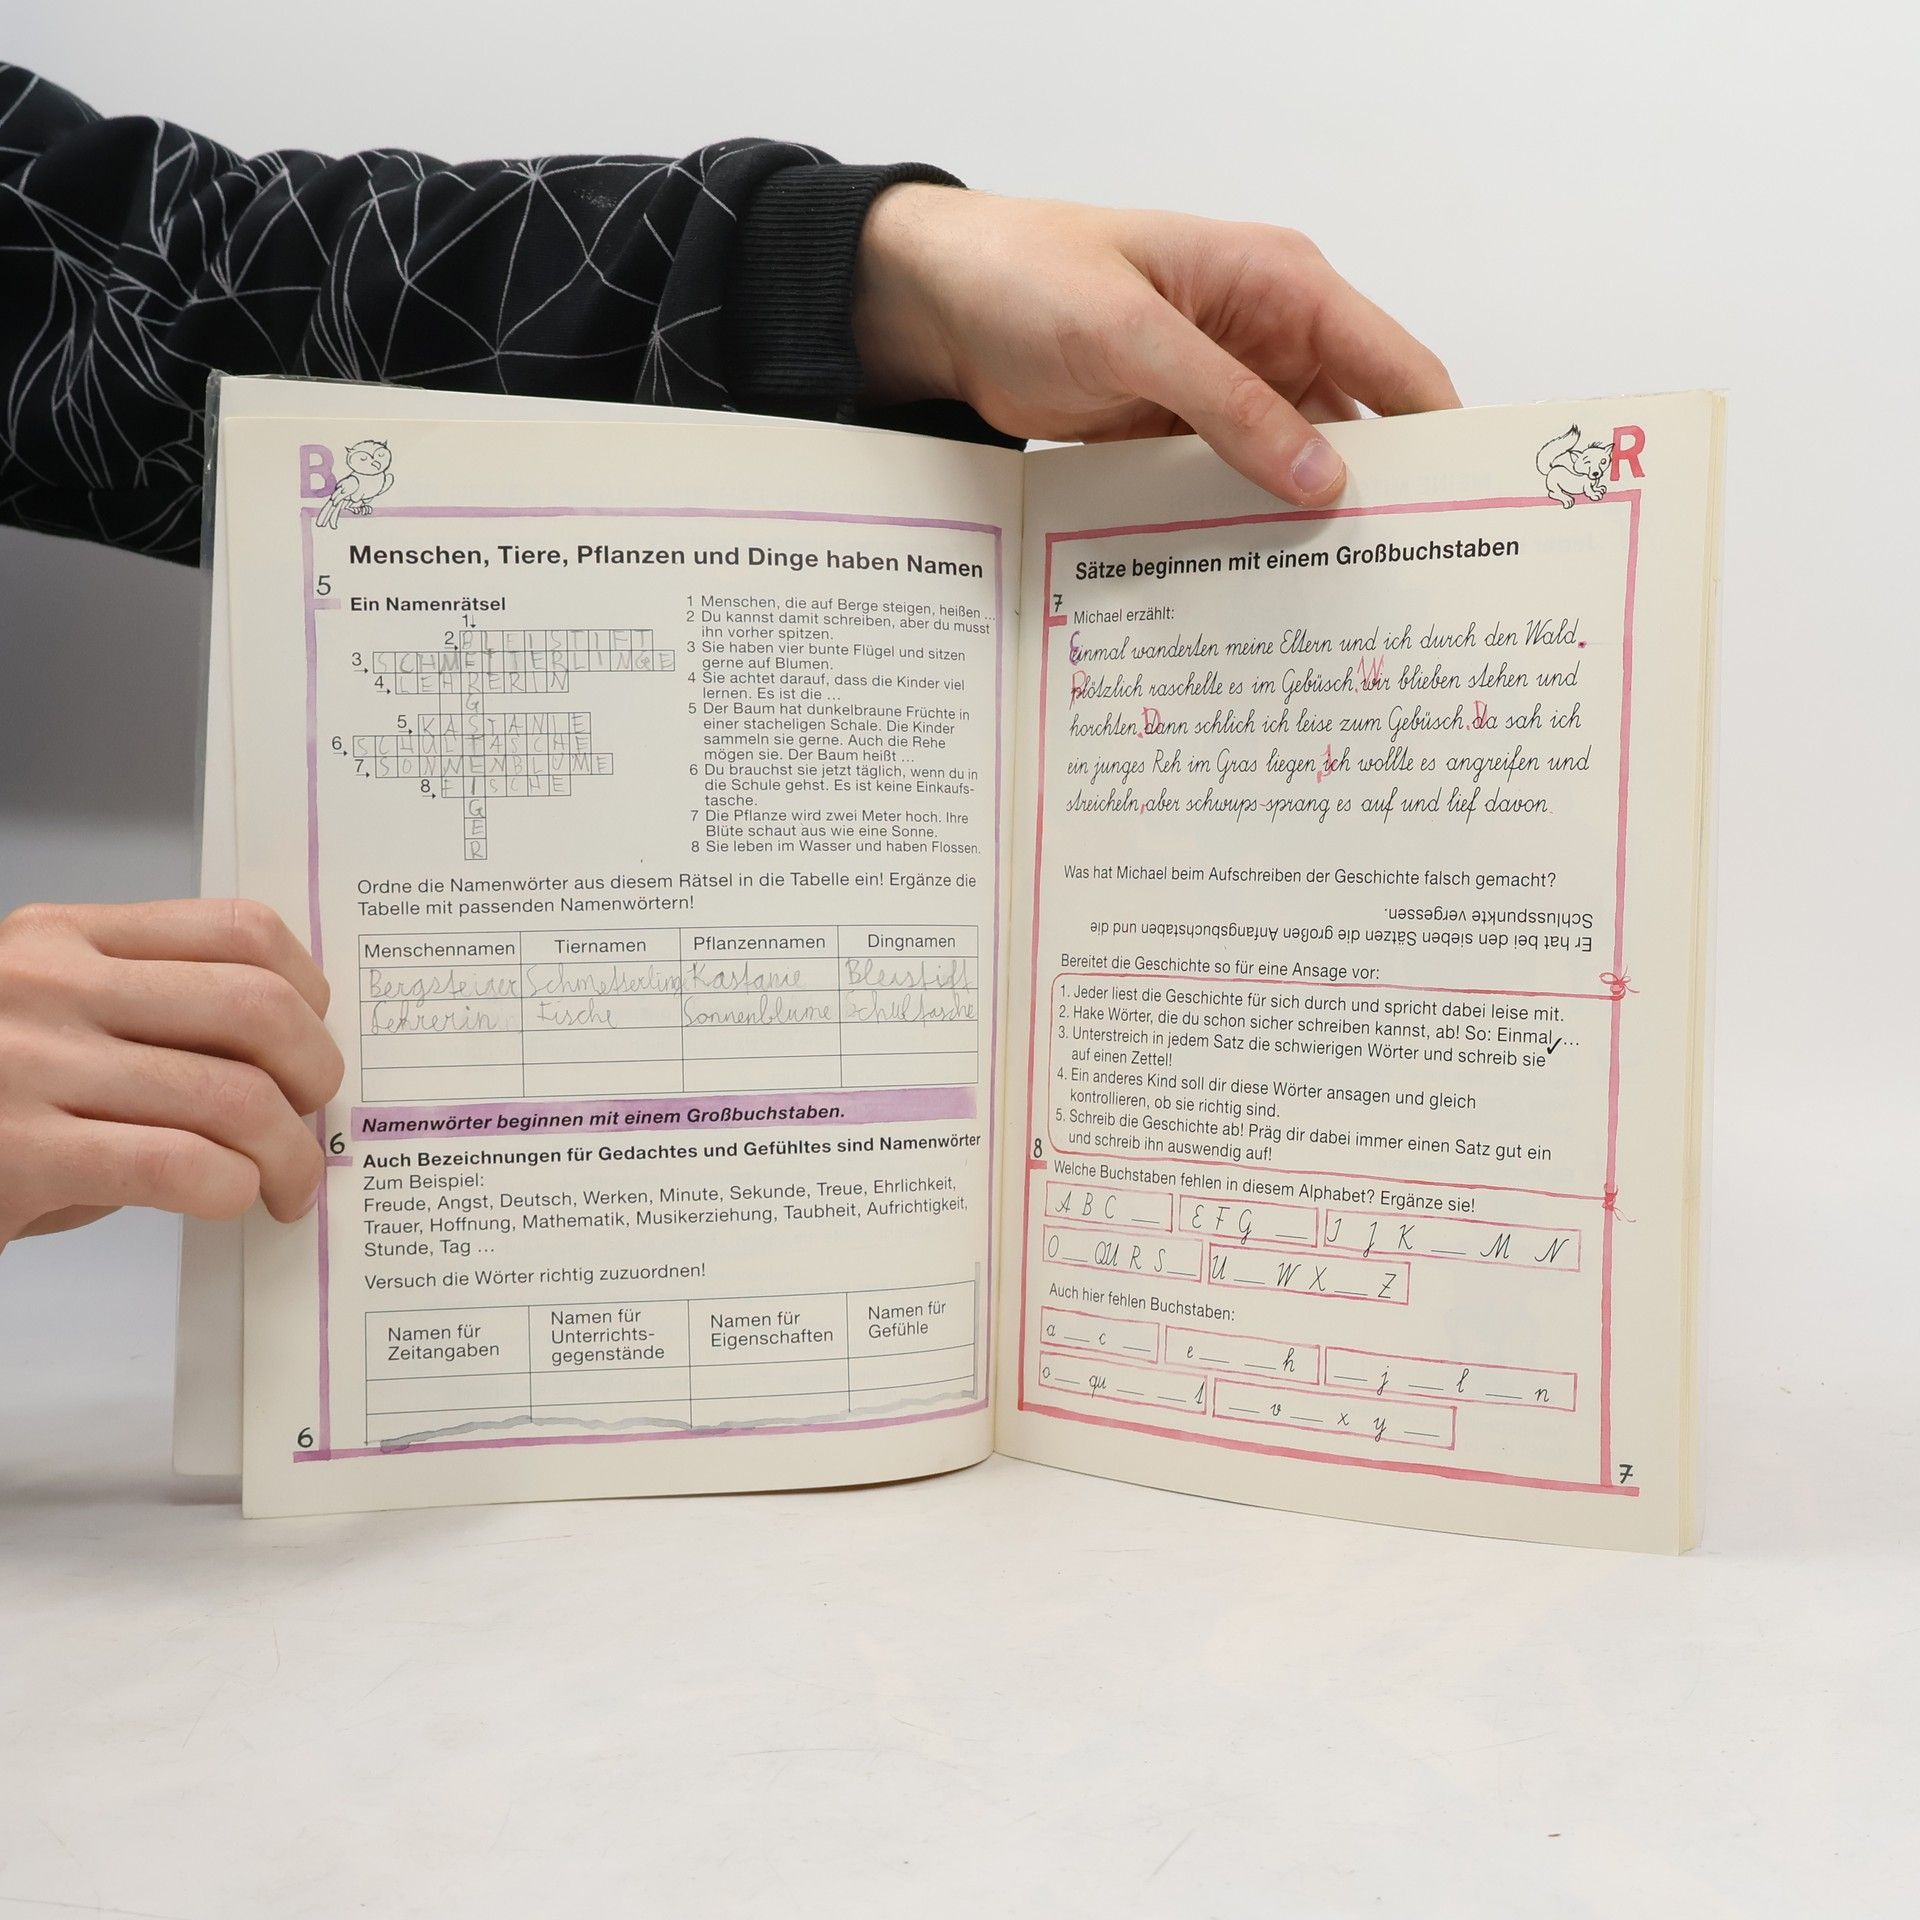 B
Menschen, Tiere, Pflanzen und Dinge haben Namen
5
Ein Namenrätsel
1↓
2. BLEISTIFT
3. SCHMETTERLINGE
4. LEHRERIN
G
5. KASTANIE
6. SCHULTASCHE
7. SONNENBLUME
8. FISCHE
G
E
R
1 Menschen, die auf Berge steigen, heißen ...
2 Du kannst damit schreiben, aber du musst
ihn vorher spitzen.
3 Sie haben vier bunte Flügel und sitzen
gerne auf Blumen.
4 Sie achtet darauf, dass die Kinder viel
lernen. Es ist die ...
5 Der Baum hat dunkelbraune Früchte in
einer stacheligen Schale. Die Kinder
sammeln sie gerne. Auch die Rehe
mögen sie. Der Baum heißt ...
6 Du brauchst sie jetzt täglich, wenn du in
die Schule gehst. Es ist keine Einkaufs-
tasche.
7 Die Pflanze wird zwei Meter hoch. Ihre
Blüte schaut aus wie eine Sonne.
8 Sie leben im Wasser und haben Flossen.
Ordne die Namenwörter aus diesem Rätsel in die Tabelle ein! Ergänze die
Tabelle mit passenden Namenwörtern!
Menschennamen Tiernamen Pflanzennamen Dingnamen
Bergsteiger Schmetterling Kastanie Bleistift
Lehrerin Fische Sonnenblume Schultasche
Namenwörter beginnen mit einem Großbuchstaben.
6
Auch Bezeichnungen für Gedachtes und Gefühltes sind Namenwörter
Zum Beispiel:
Freude, Angst, Deutsch, Werken, Minute, Sekunde, Treue, Ehrlichkeit,
Trauer, Hoffnung, Mathematik, Musikerziehung, Taubheit, Aufrichtigkeit,
Stunde, Tag ...
Versuch die Wörter richtig zuzuordnen!
Namen für Zeitangaben
Namen für Unterrichts-
gegenstände
Namen für Eigenschaften
Namen für Gefühle
6
R
Sätze beginnen mit einem Großbuchstaben
7
Michael erzählt:
Einmal wanderten meine Eltern und ich durch den Wald.
Plötzlich raschelte es im Gebüsch. Wir blieben stehen und
horchten. Dann schlich ich leise zum Gebüsch. Da sah ich
ein junges Reh im Gras liegen. Ich wollte es angreifen und
streicheln, aber schwups-sprang es auf und lief davon.
Was hat Michael beim Aufschreiben der Geschichte falsch gemacht?
Er hat bei den sieben Sätzen die großen Anfangsbuchstaben und die
Schlusspunkte vergessen.
Bereitet die Geschichte so für eine Ansage vor:
1. Jeder liest die Geschichte für sich durch und spricht dabei leise mit.
2. Hake Wörter, die du schon sicher schreiben kannst, ab! So: Einmal ✓...
3. Unterstreich in jedem Satz die schwierigen Wörter und schreib sie
auf einen Zettel!
4. Ein anderes Kind soll dir diese Wörter ansagen und gleich
kontrollieren, ob sie richtig sind.
5. Schreib die Geschichte ab! Präg dir dabei immer einen Satz gut ein
und schreib ihn auswendig auf!
8
Welche Buchstaben fehlen in diesem Alphabet? Ergänze sie!
A B C _ E F G _ I J K _ M N
O _ QU R S _ U _ W X _ Z
Auch hier fehlen Buchstaben:
a _ c _ e _ _ h _ j _ l _ n
o _ qu _ _ t _ v _ x y _
7